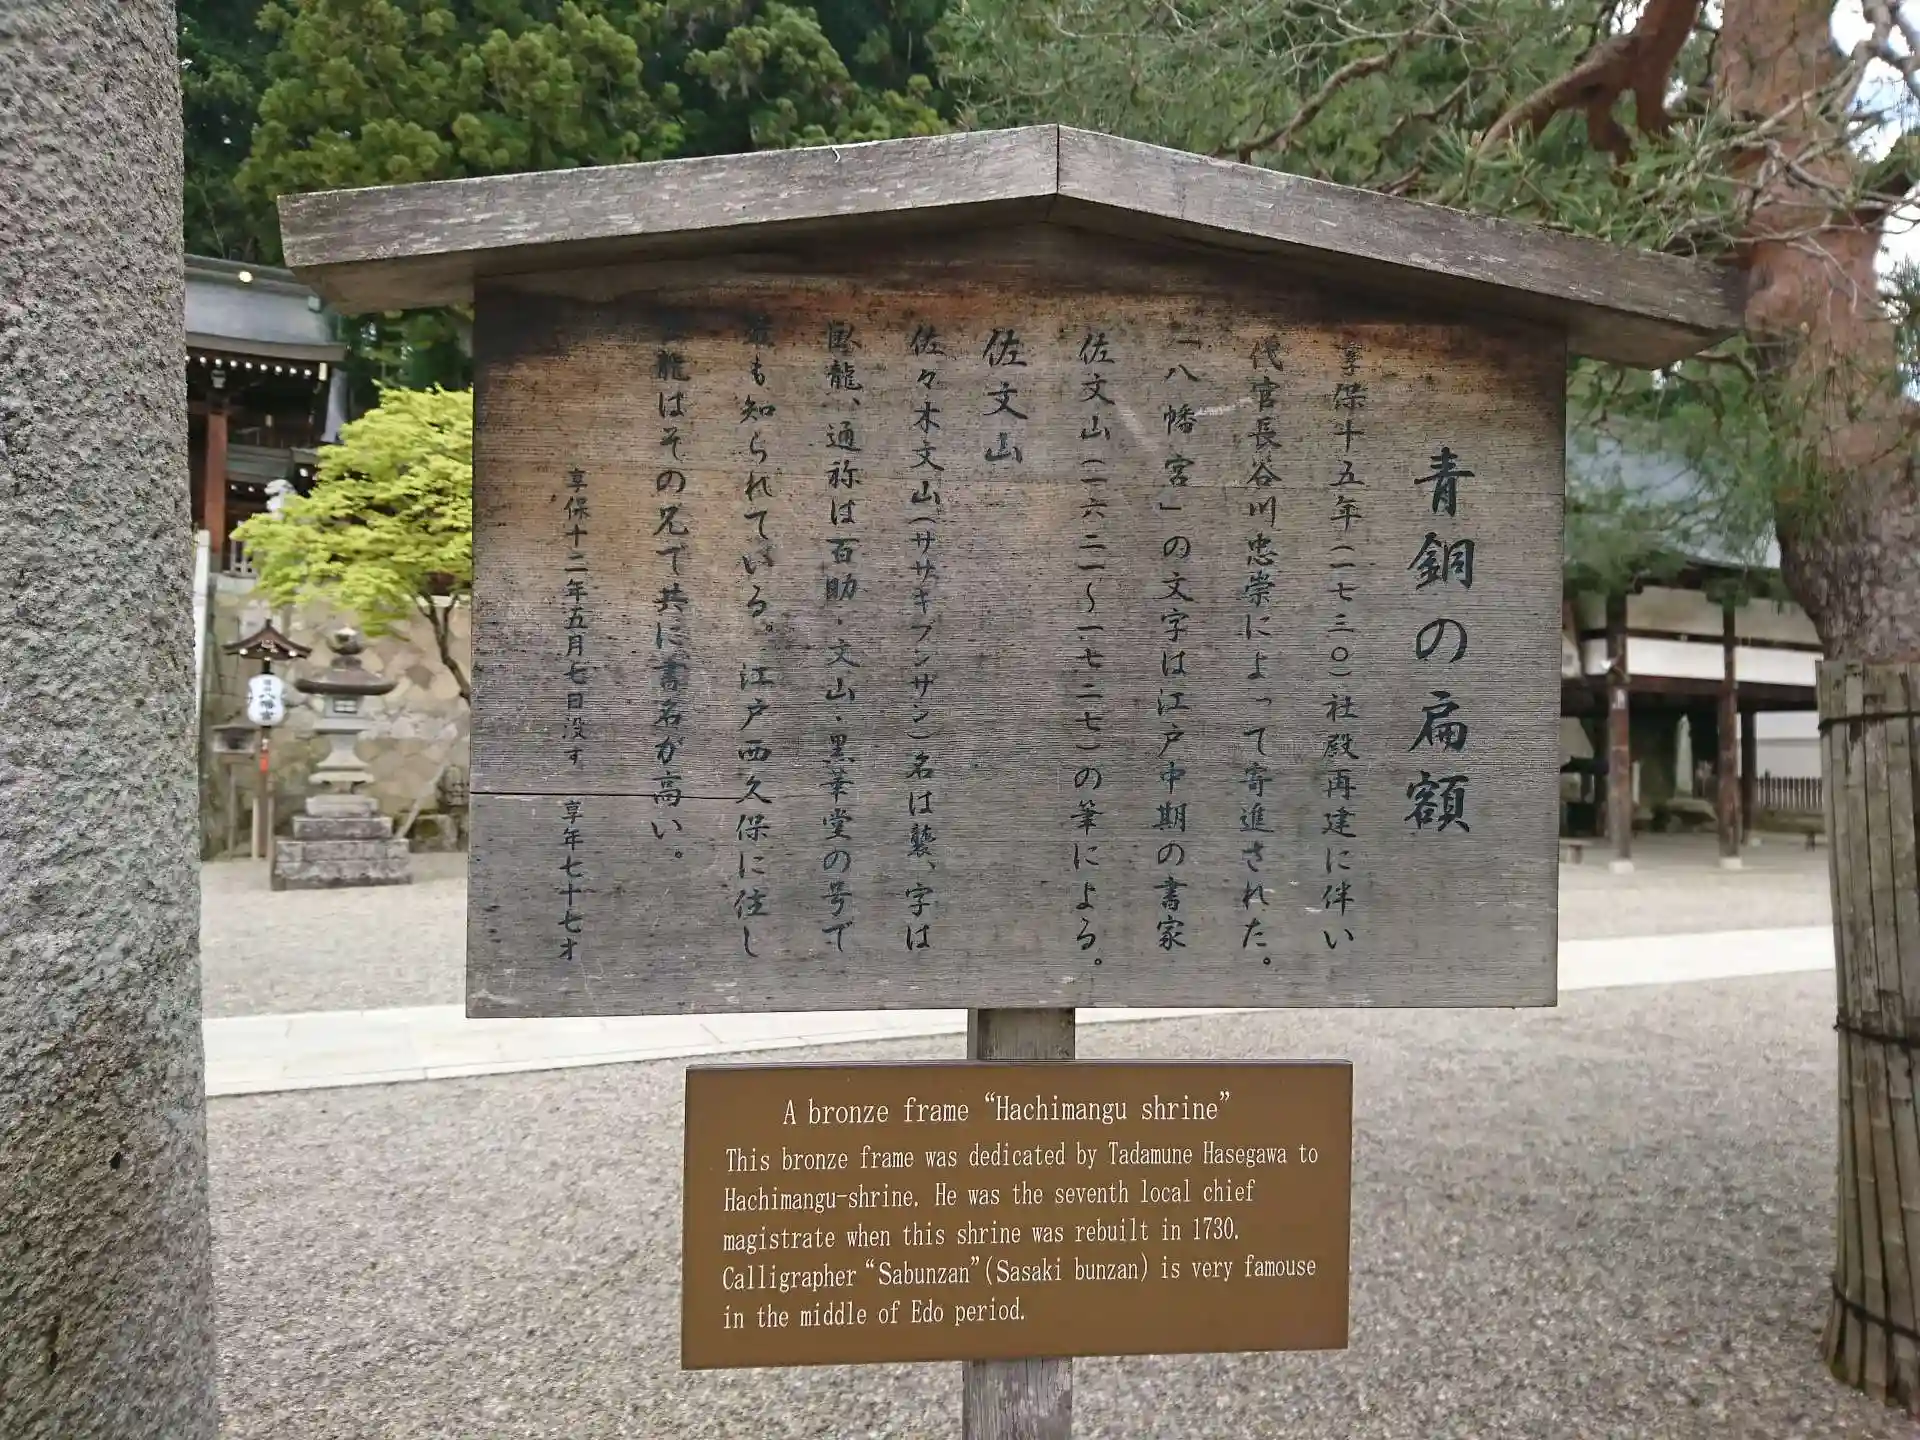 青銅の扁額
享保十五年(一七三〇)社殿再建に伴い
代官長谷川忠崇によって寄進された。
「八幡宮」の文字は江戸中期の書家
佐文山(一六二一〜一七二七)の筆による。
佐文山
佐々木文山(ササキブンザン)名は襲、字は
臥龍、通称は百助・文山・墨華堂の号で
も知られている。江戸西久保に住し
龍はその兄で共に書名が高い。
享保十二年五月七日没す 享年七十七才
A bronze frame “Hachimangu shrine”
This bronze frame was dedicated by Tadamune Hasegawa to
Hachimangu-shrine. He was the seventh local chief
magistrate when this shrine was rebuilt in 1730.
Calligrapher “Sabunzan”(Sasaki bunzan) is very famouse
in the middle of Edo period.
八幡宮